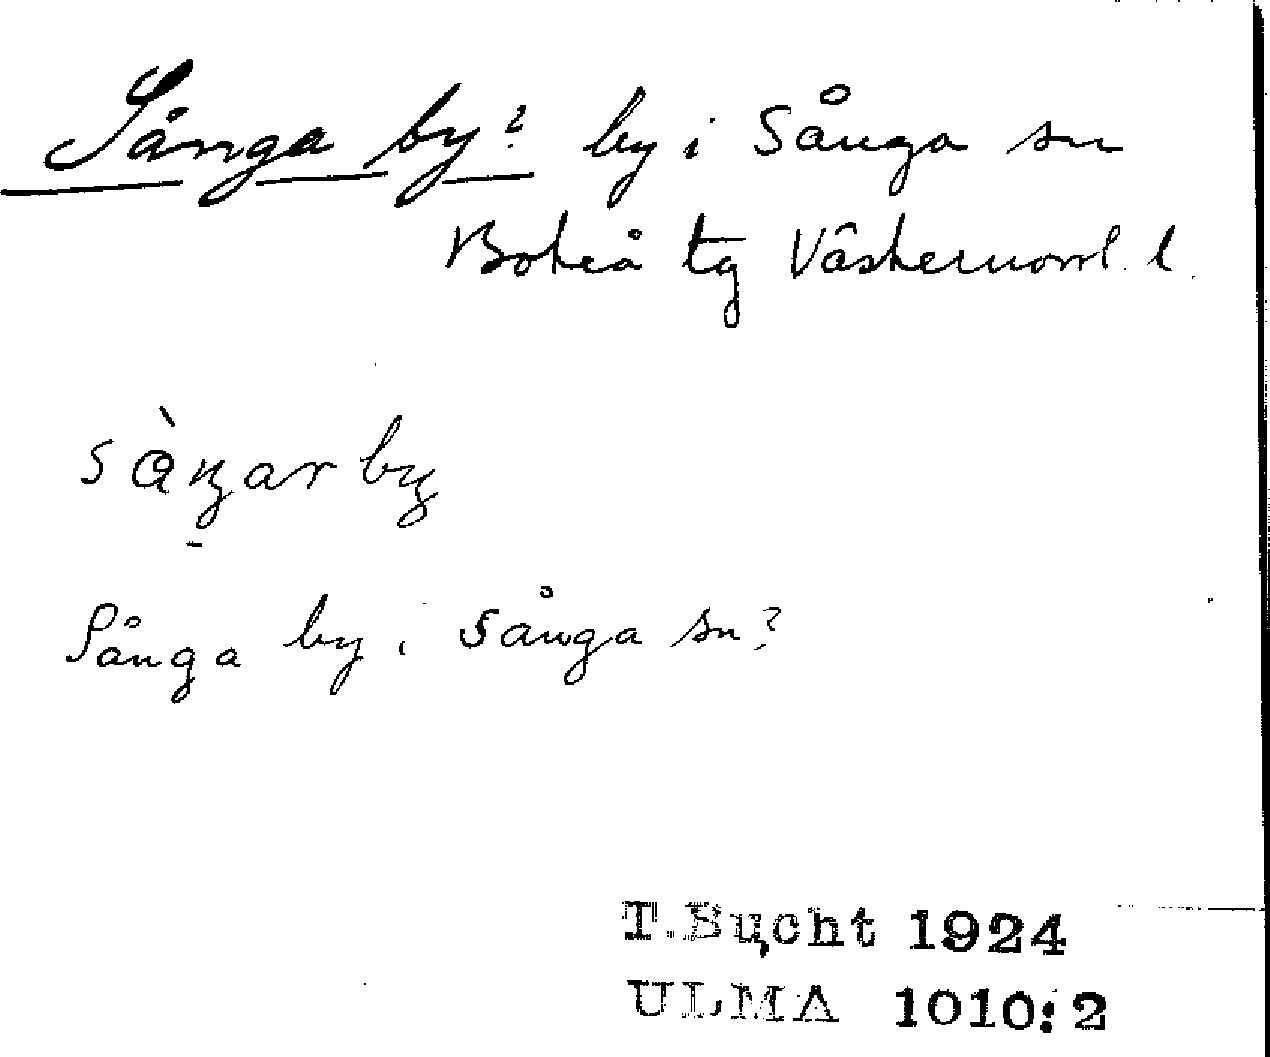 Sånga by? by i Sånga sn
Boteå tg Västernorrl. l.
sàŋarby
Sånga by i Sånga sn?
T. Bucht 1924
ULMA 1010:2